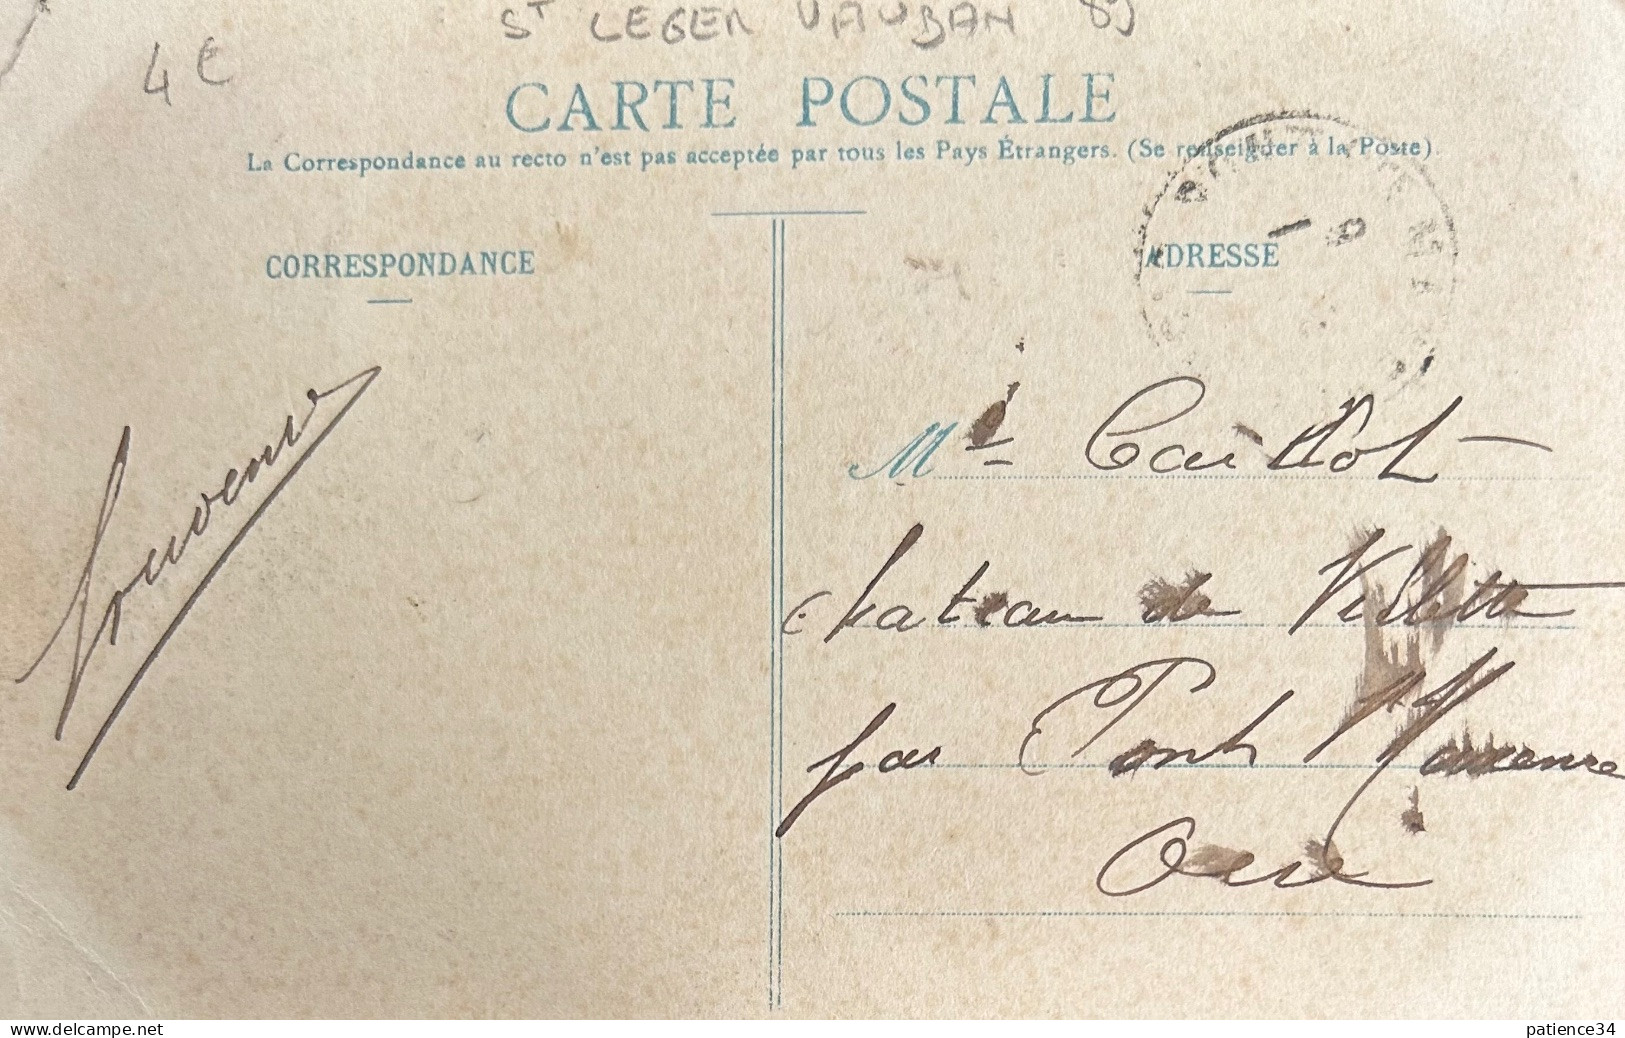 St LEGER VAUBAN 89
4 €
CARTE POSTALE
La Correspondance au recto n'est pas acceptée par tous les Pays Étrangers. (Se renseigner à la Poste).
CORRESPONDANCE
ADRESSE
souvenir
M Caillot
chateau de Villette
par Pont Ste Maxence
Oise
delcampe.net
patience34